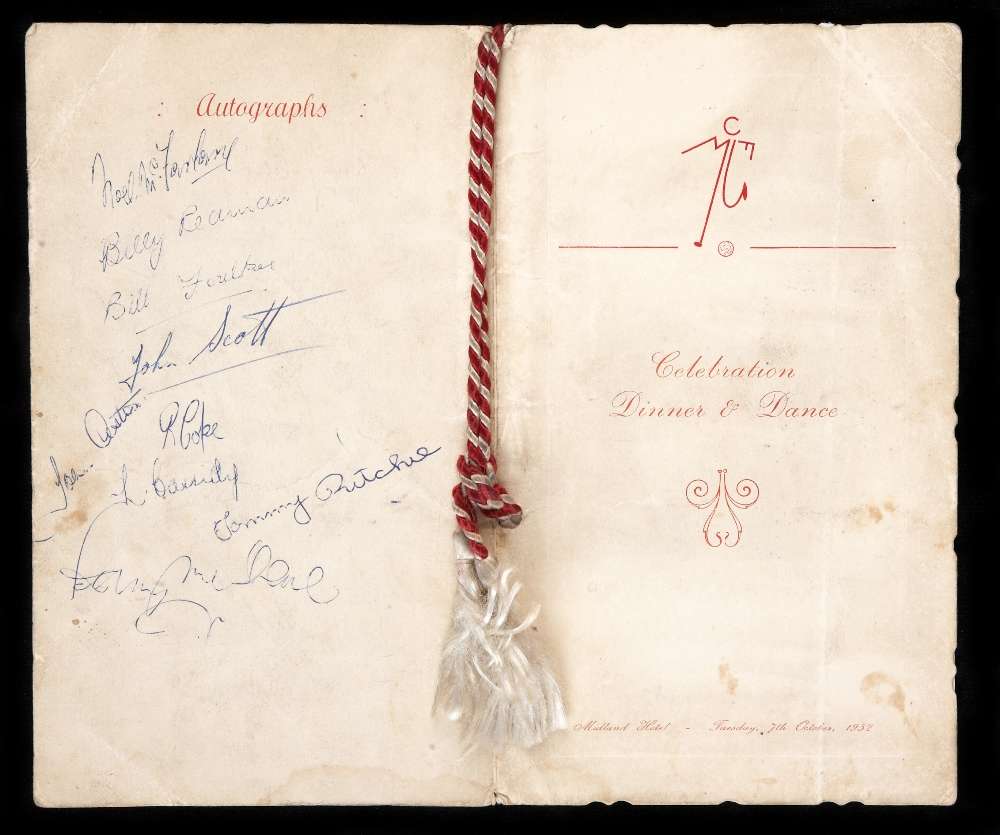 : Autographs :
Noel McFarlane
Billy Redman
Bill Foulkes
John Scott
Austin
R Cope
L. Cassidy
Tommy Ritchie
Celebration
Dinner & Dance
Midland Hotel - Tuesday, 7th October, 1952